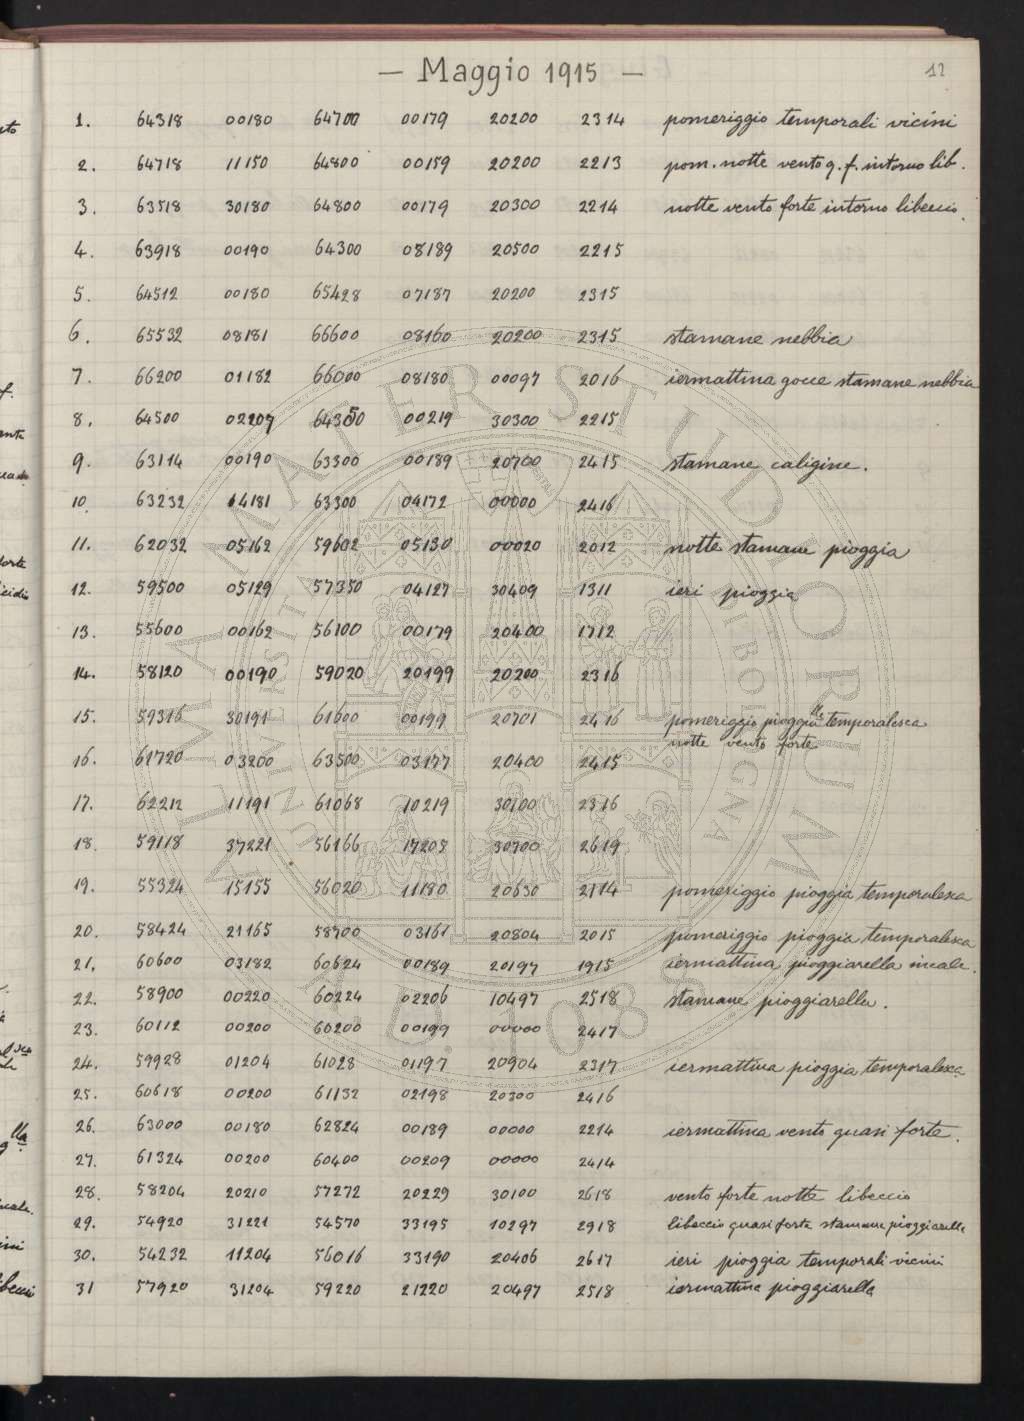 — Maggio 1915 —
12
1. 64318 00180 64700 00179 20200 2314 pomeriggio temporali vicini
2. 64718 11150 64800 00159 20200 2213 pom. notte vento q. f. intorno lib.
3. 63518 30180 64800 00179 20300 2214 notte vento forte intorno libeccio.
4. 63918 00190 64300 08189 20500 2215
5. 64512 00180 65428 07187 20200 2315
6. 65532 08181 66600 08160 20200 2315 stamane nebbia
7. 66200 01182 66000 08180 00097 2016 iermattina gocce stamane nebbia
8. 64500 02207 64350 00219 30300 2215
9. 63114 00190 63300 00189 20700 2415 stamane caligine.
10. 63232 14181 63300 04172 00000 2416
11. 62032 05162 59602 05130 00020 2012 notte stamane pioggia
12. 59500 05129 57350 04127 30409 1311 ieri pioggia
13. 55600 00162 56100 00179 20400 1712
14. 58120 00190 59020 20199 20200 2316
15. 59316 30191 61600 00199 20701 2416 pomeriggio pioggia lla temporalesca
notte vento forte
16. 61720 03200 63500 03177 20400 2415
17. 62212 11191 61068 10219 30100 2316
18. 59118 37221 56166 17205 30700 2619
19. 55324 15155 56020 11180 20630 2114 pomeriggio pioggia temporalesca
20. 58424 21165 58700 03161 20804 2015 pomeriggio pioggia temporalesca
21. 60600 03182 60624 00189 20197 1915 iermattina pioggiarella incalc.
22. 58900 00220 60224 02206 10497 2518 stamane pioggiarella.
23. 60112 00200 60200 00199 00000 2417
24. 59928 01204 61028 01197 20904 2317 iermattina pioggia temporalesca
25. 60618 00200 61132 02198 20300 2416
26. 63000 00180 62824 00189 00000 2214 iermattina vento quasi forte.
27. 61324 00200 60400 00209 00000 2414
28. 58204 20210 57272 20229 30100 2618 vento forte notte libeccio
29. 54920 31221 54570 33195 10297 2918 libeccio quasi forte stamane pioggiarella
30. 54232 11204 56016 33190 20406 2617 ieri pioggia temporali vicini
31 57920 31204 59220 21220 20497 2518 iermattina pioggiarella
ALMA MATER STUDIORUM
UNIVERSITÀ DI BOLOGNA
A.D. 1088